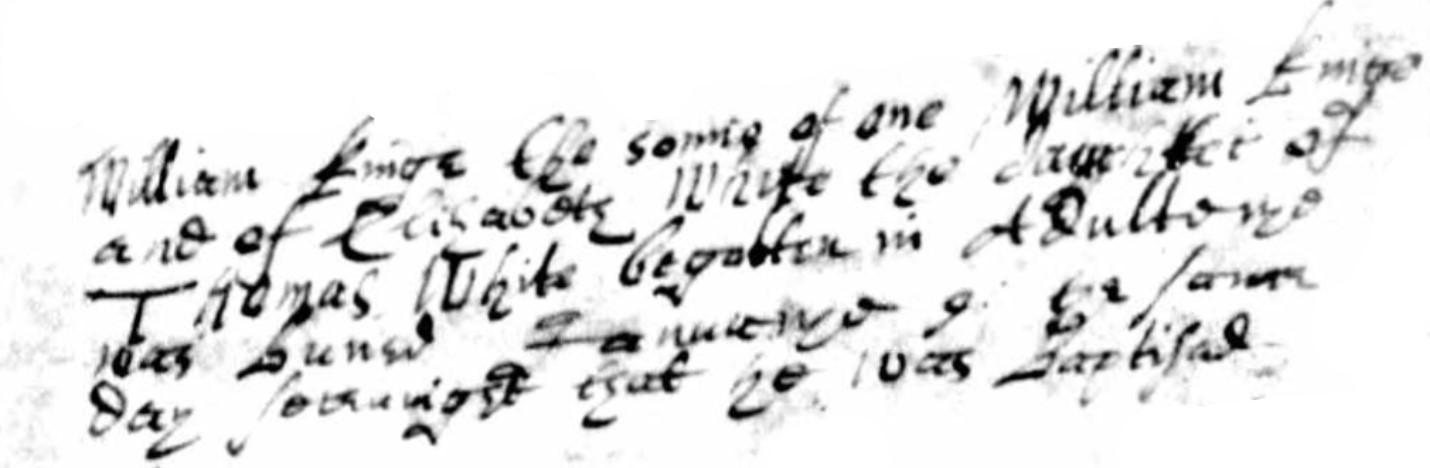 William Kinge the sonne of one William Kinge
and of Elisabeth White the daughter of
Thomas White begotten in Adulterye
was buried Januarye 9. the same
day that he was Baptised